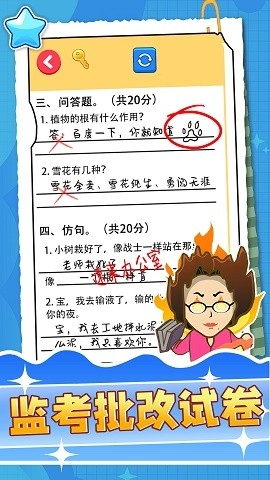 三、问答题。（共20分）
1.植物的根有什么作用？
答：百度一下，你就知道
2.雪花有几种？
雪花全麦、雪花纯生、勇闯天涯
四、仿句。（共20分）
1.小树栽好了，像战士一样站在那
老师栽
请来办公室
像 一
2.宝，我去输液了，输的
你的夜。
宝，我去工地拌水泥
么泥，我只喜欢你。
监考批改试卷